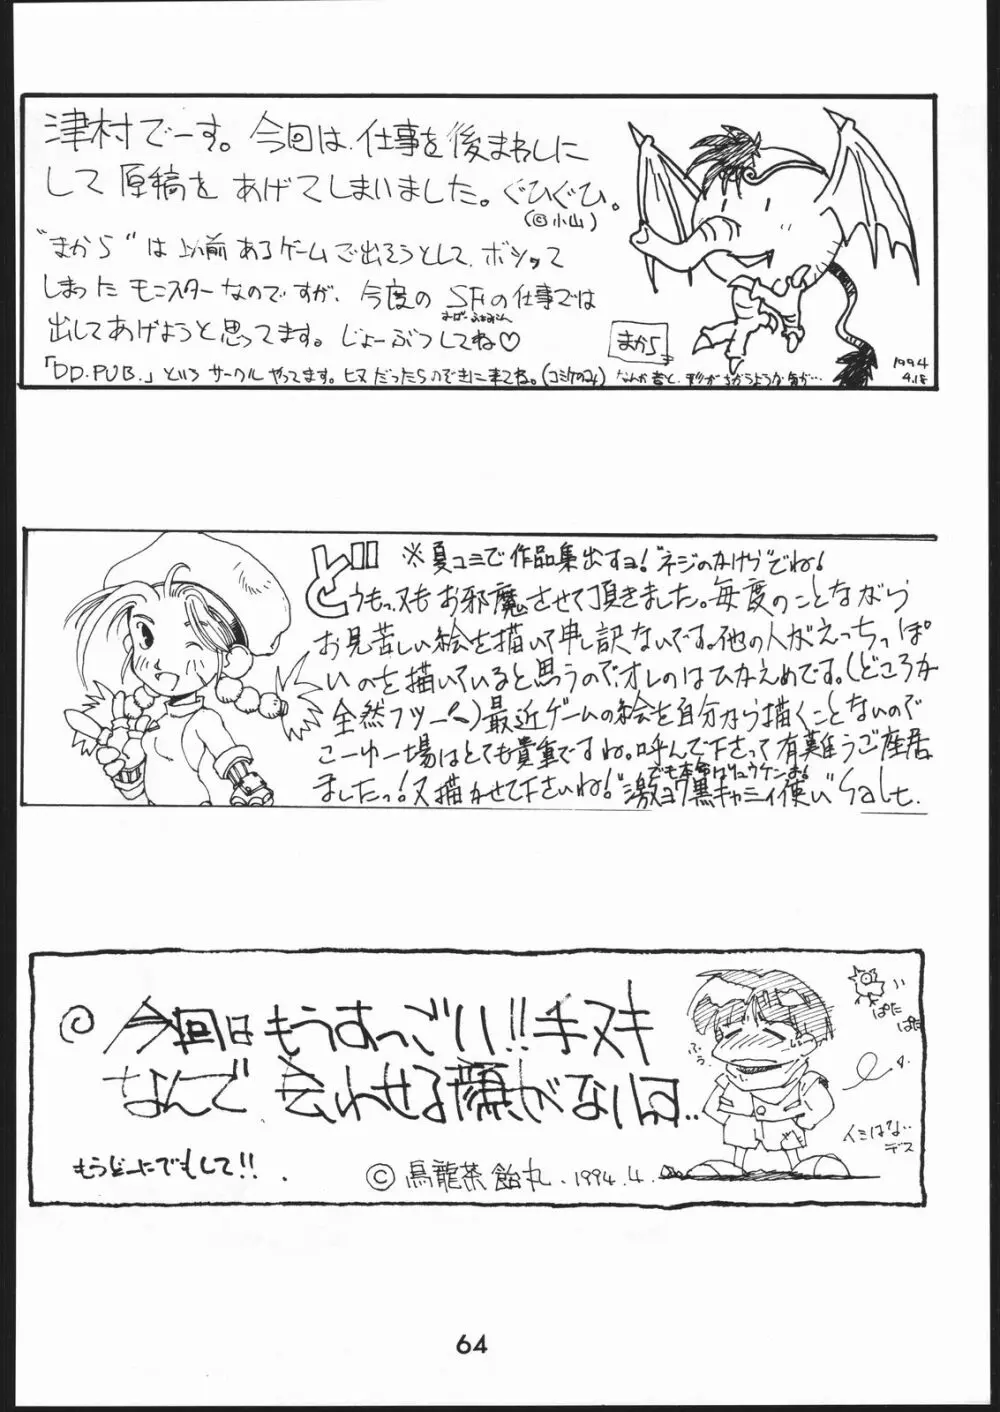 津村でーす。今回は、仕事を後まわしに
して原稿をあげてしまいました。ぐひぐひ。
(©小山)
"まから"は以前あるゲームで出そうとして、ボシって
しまったモンスターなのですが、今度のSFCの仕事では
すーぱーふぁみこん
出してあげようと思ってます。じょーぶつしてね♡
まから
「DD.PUB.」というサークルやってます。ヒマだったらのぞきに来てね。(コミケのみ) なんか昔と、形がちがうような気が…
1994
4.18
※夏コミで作品集出すヨ!"ネジのかけら"でね!
どうもっ、又もお邪魔させて頂きました。毎度のことながら
お見苦しい絵を描いて申し訳ないです。他の人がえっちっぽ
いのを描いていると思うので、オレのはひかえめです。(どころか
全然フツーへ)最近ゲームの絵を自分から描くことないので
こーゆー場はとても貴重ですね。呼んで下さって有難うご座居
でも本命はリュウケンよ!
ましたっ!又描かせて下さいね!"激ヨワ黒キャミィ使い"Salt.
今回はもうすっごい!!手ヌキ
なんで 会わせる顔がないは..
もうどーにでもして!! .
© 烏龍茶飴丸. 1994.4.
ふぅ
ぱた
ぱた
イミはない
デス
64